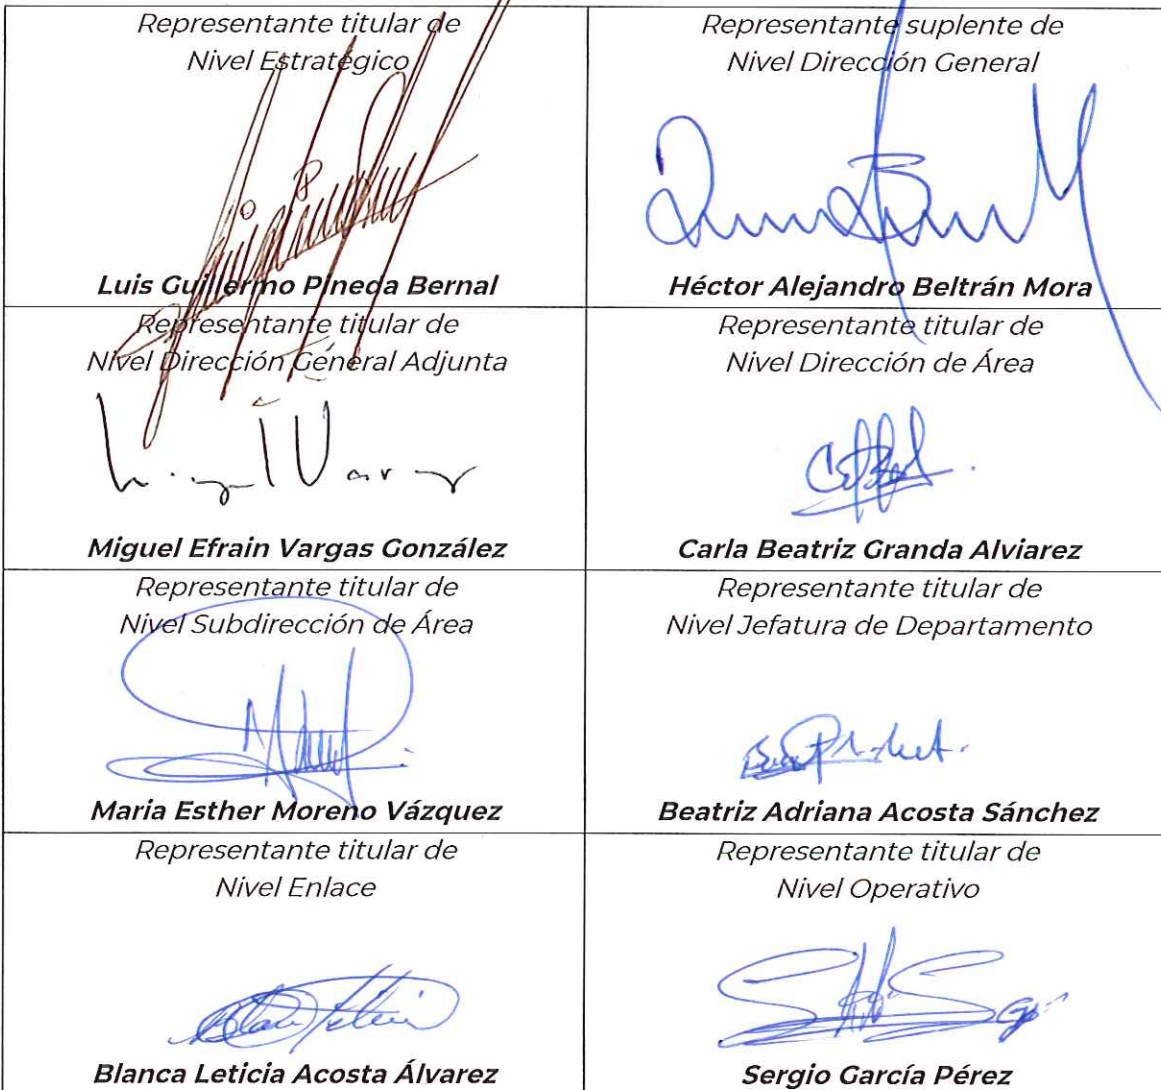 Representante titular de
Nivel Estratégico
Luis Guillermo Pineda Bernal
Representante suplente de
Nivel Dirección General
Héctor Alejandro Beltrán Mora
Representante titular de
Nivel Dirección General Adjunta
Miguel Efrain Vargas González
Representante titular de
Nivel Dirección de Área
Carla Beatriz Granda Alviarez
Representante titular de
Nivel Subdirección de Área
Maria Esther Moreno Vázquez
Representante titular de
Nivel Jefatura de Departamento
Beatriz Adriana Acosta Sánchez
Representante titular de
Nivel Enlace
Blanca Leticia Acosta Álvarez
Representante titular de
Nivel Operativo
Sergio García Pérez